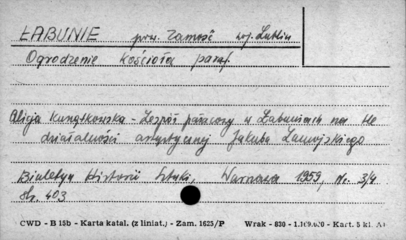 ŁABUNIE pow. Zamość woj. Lublin
Ogrodzenie Kościoła paraf.
Alicja Kurzątkowska - Zespół pałacowy w Łabuniach na tle
działalności artystycznej Jakuba
Biuletyn Historii Sztuki, Warszawa 1959, Nr. 3/4
str. 403
CWD - B 15b - Karta katal. (z liniat.) - Zam. 1625/P Wrak - 830 - Kart. 5 kl.